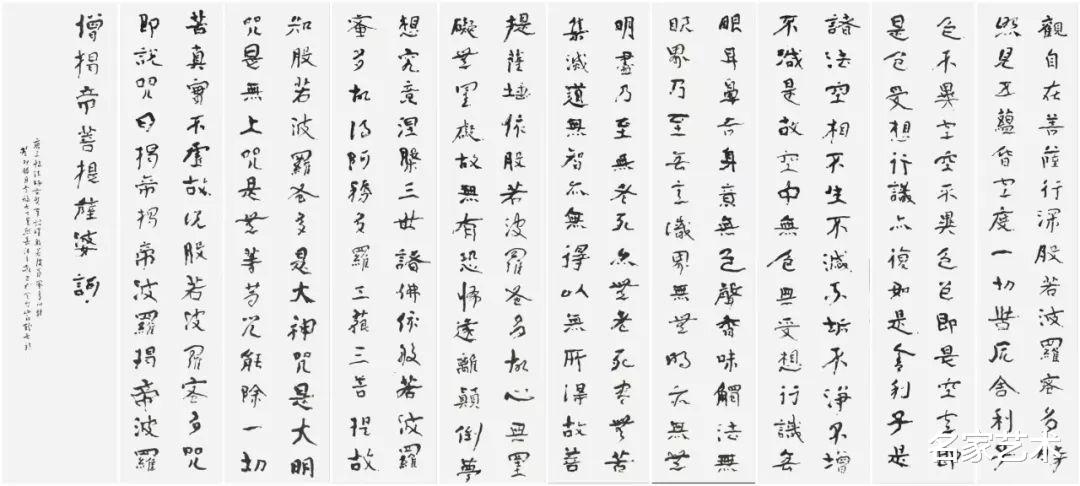 觀自在菩薩行深般若波羅蜜多時
照見五蘊皆空度一切苦厄舍利子
色不異空空不異色色即是空空即
是色受想行識亦復如是舍利子是
諸法空相不生不滅不垢不淨不增
不減是故空中無色無受想行識無
眼耳鼻舌身意無色聲香味觸法無
眼界乃至無意識界無無明亦無無
明盡乃至無老死亦無老死盡無苦
集滅道無智亦無得以無所得故菩
提薩埵依般若波羅蜜多故心無罣
礙無罣礙故無有恐怖遠離顛倒夢
想究竟涅槃三世諸佛依般若波羅
蜜多故得阿耨多羅三藐三菩提故
知般若波羅蜜多是大神咒是大明
咒是無上咒是無等等咒能除一切
苦真實不虛故說般若波羅蜜多咒
即說咒曰揭帝揭帝波羅揭帝波羅
僧揭帝菩提薩婆訶
名家艺术